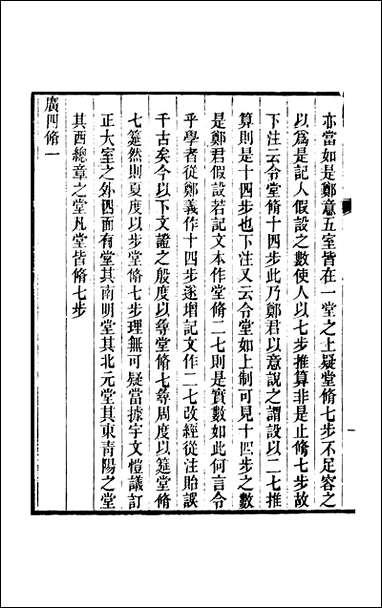 亦當如是鄭意五室皆在一堂之上疑堂脩七步不足容之
以為是記人假設之數使人以七步推算非是止脩七步故
下注云令堂脩十四步此乃鄭君以意說之謂設以二七推
算則是十四步也下注又云令堂如上制可見十四步之數
是鄭君假設若記文本作堂脩二七則是實數如此何言令
乎學者從鄭義作十四步遂增記文作二七改經從注貽誤
千古矣今以下文證之殷度以尋堂脩七尋周度以筵堂脩
七筵然則夏度以步堂脩七步理無可疑當據宇文愷議訂
正大室之外四面有堂其南明堂其北元堂其東青陽之堂
其西總章之堂凡堂皆脩七步
廣四脩一